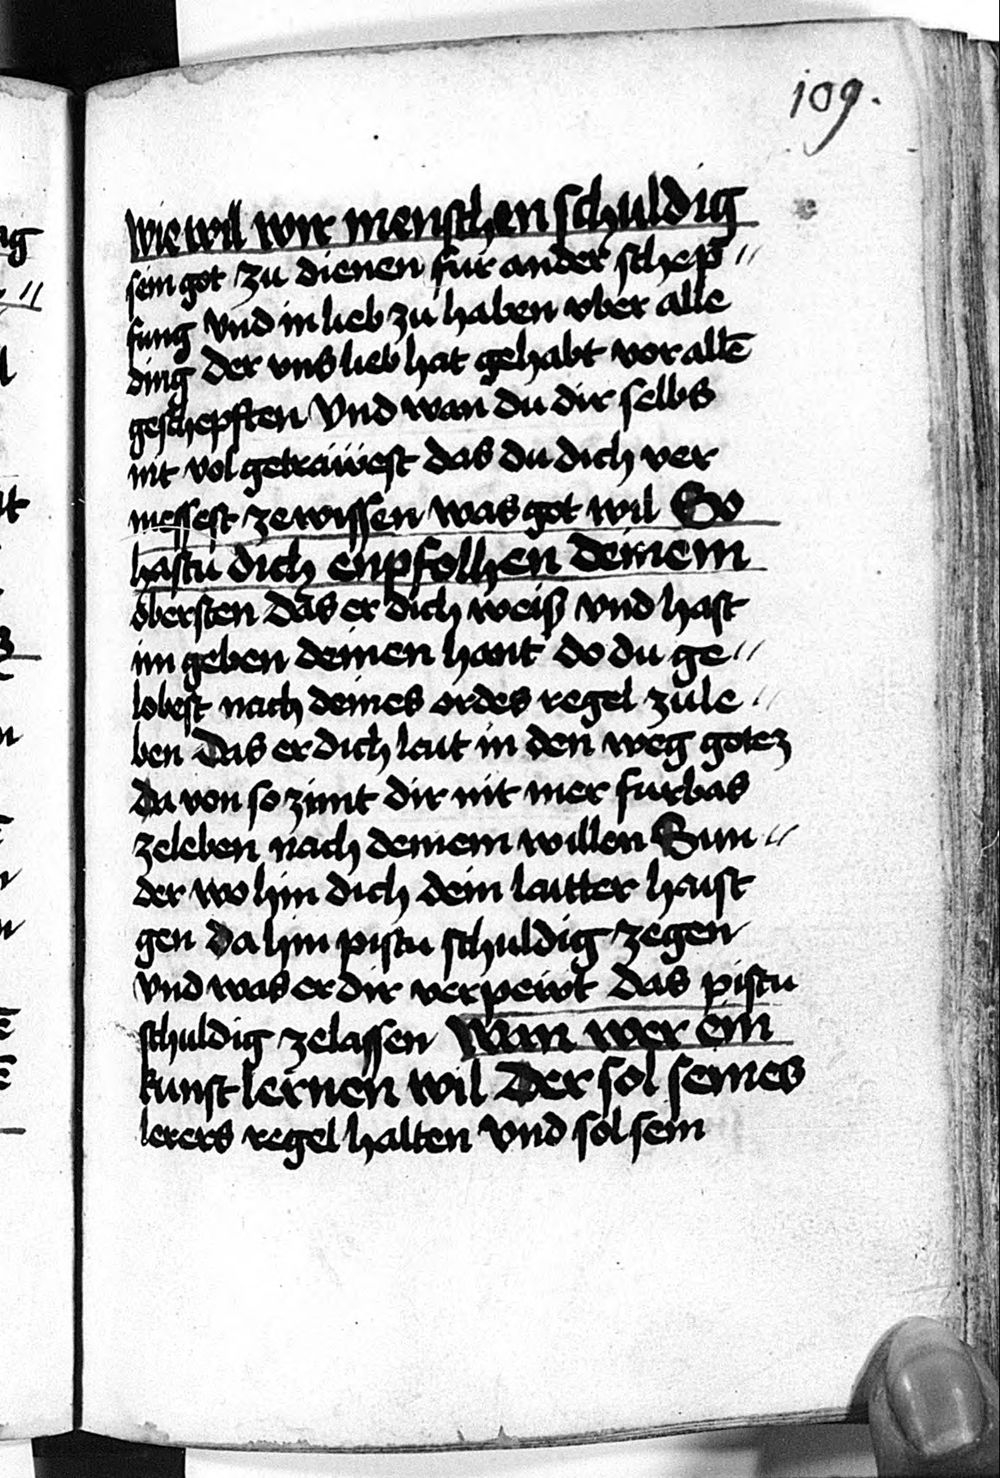 109.
wie wil wir menschen schuldig
sein got zu dienen fur ander schep //
fung vnd in lieb zu haben vber alle
ding der vns lieb hat gehabt vor allē
geschepften Vnd wan du dir selbs
nit vol getrawest das du dich ver
messest zewissen was got wil So
hastu dich enpfolhen deinem
obersten das er dich weiß vnd hast
im geben deinen hant do du ge //
lobest nach deines ordes regel zu le //
ben Das er dich leut in den weg gotez
Da von so zimt dir nit mer furbas
zeleben nach deinem willen Sun //
der wo hin dich dein lautter haist
gen Da hin pistu schuldig zegen
vnd was er dir verpewt das pistu
schuldig zelassen Wan wer ein
kunst lernen wil Der sol seines
lerers regel halten vnd sol sein